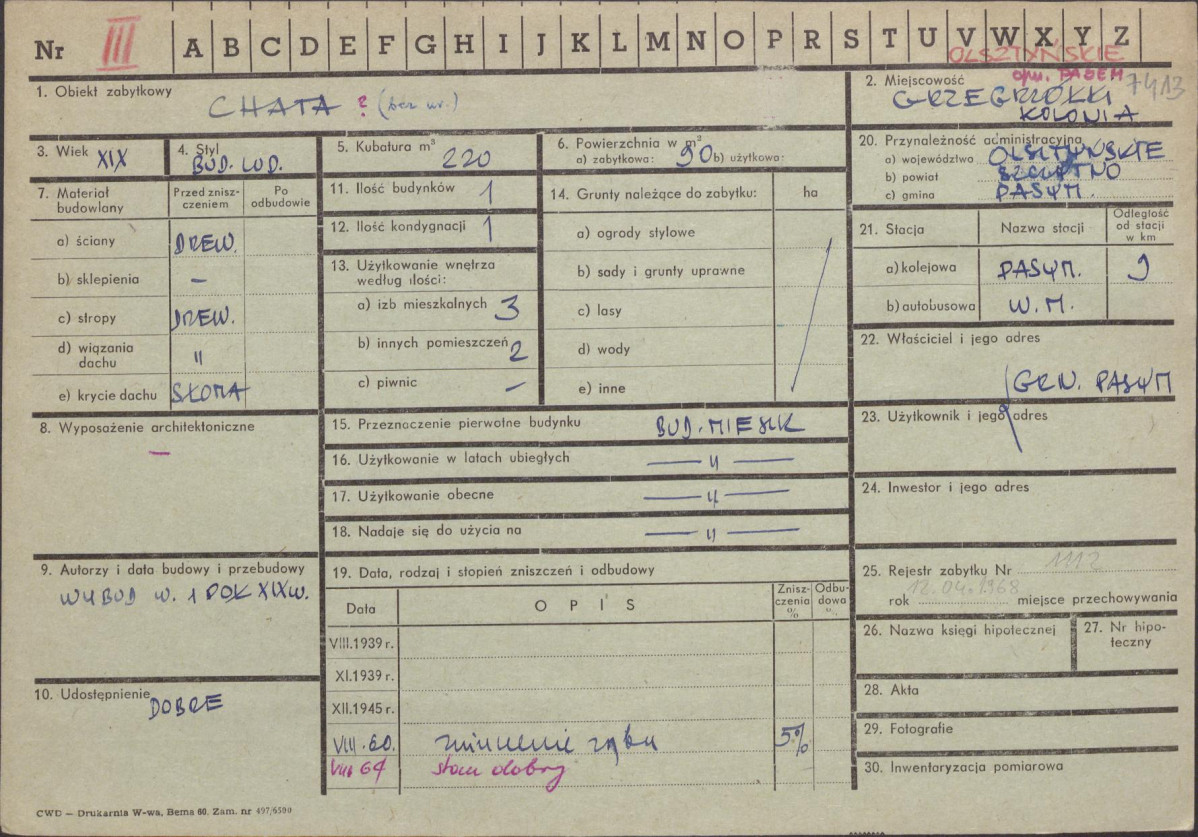 Nr III A B C D E F G H I J K L M N O P R S T U V W X Y Z
OLSZTYŃSKIE
pow. PASYM 7413
1. Obiekt zabytkowy CHATA ? (bez nr.)
2. Miejscowość
GRZEGRZÓŁKI
KOLONIA
3. Wiek XIX
4. Styl
BUD. LUD.
5. Kubatura m³ 220
6. Powierzchnia w m²
a) zabytkowa: 90 b) użytkowa:
20. Przynależność administracyjna
a) województwo OLSZTYŃSKIE
b) powiat SZCZYTNO
c) gmina PASYM
7. Materiał budowlany
Przed zniszczeniem
Po odbudowie
a) ściany DREW.
b) sklepienia –
c) stropy DREW.
d) wiązania dachu "
e) krycie dachu SŁOMA
11. Ilość budynków 1
12. Ilość kondygnacji 1
13. Użytkowanie wnętrza
według ilości:
a) izb mieszkalnych 3
b) innych pomieszczeń 2
c) piwnic –
14. Grunty należące do zabytku: ha
a) ogrody stylowe
b) sady i grunty uprawne
c) lasy
d) wody
e) inne
21. Stacja Nazwa stacji Odległość od stacji w km
a) kolejowa PASYM. 9
b) autobusowa W. M.
22. Właściciel i jego adres
GRN. PASYM
23. Użytkownik i jego adres
8. Wyposażenie architektoniczne
–
15. Przeznaczenie pierwotne budynku BUD. MIESZK
16. Użytkowanie w latach ubiegłych — " —
17. Użytkowanie obecne — " —
18. Nadaje się do użycia na — " —
24. Inwestor i jego adres
9. Autorzy i data budowy i przebudowy
WYBUD W. 1 POŁ XIXW.
19. Data, rodzaj i stopień zniszczeń i odbudowy
Data OPIS Zniszczenia % Odbudowa %
VIII.1939 r.
XI.1939 r.
XII.1945 r.
VIII.60. 5%
VIII 64 stan dobry
25. Rejestr zabytku Nr 1112
rok 12.04.1968 miejsce przechowywania
26. Nazwa księgi hipotecznej
27. Nr hipoteczny
10. Udostępnienie DOBRE
28. Akta
29. Fotografie
30. Inwentaryzacja pomiarowa
CWD — Drukarnia W-wa, Bema 60. Zam. nr 497/6590